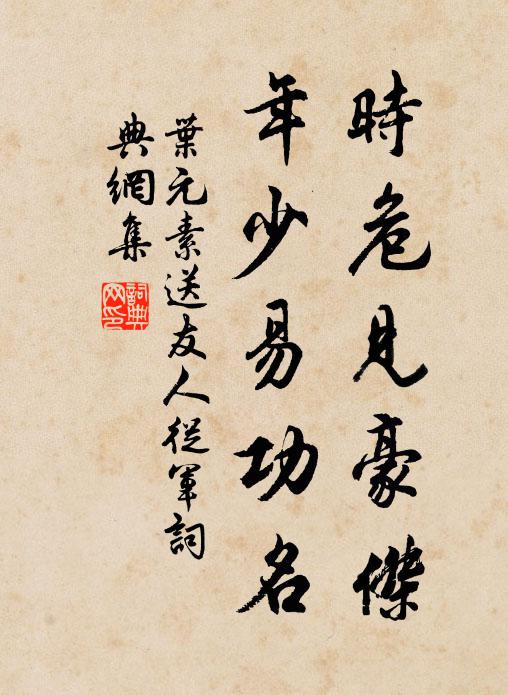 時危見豪傑
年少易功名
葉元素送友人從軍詞
典網集
詞典網印